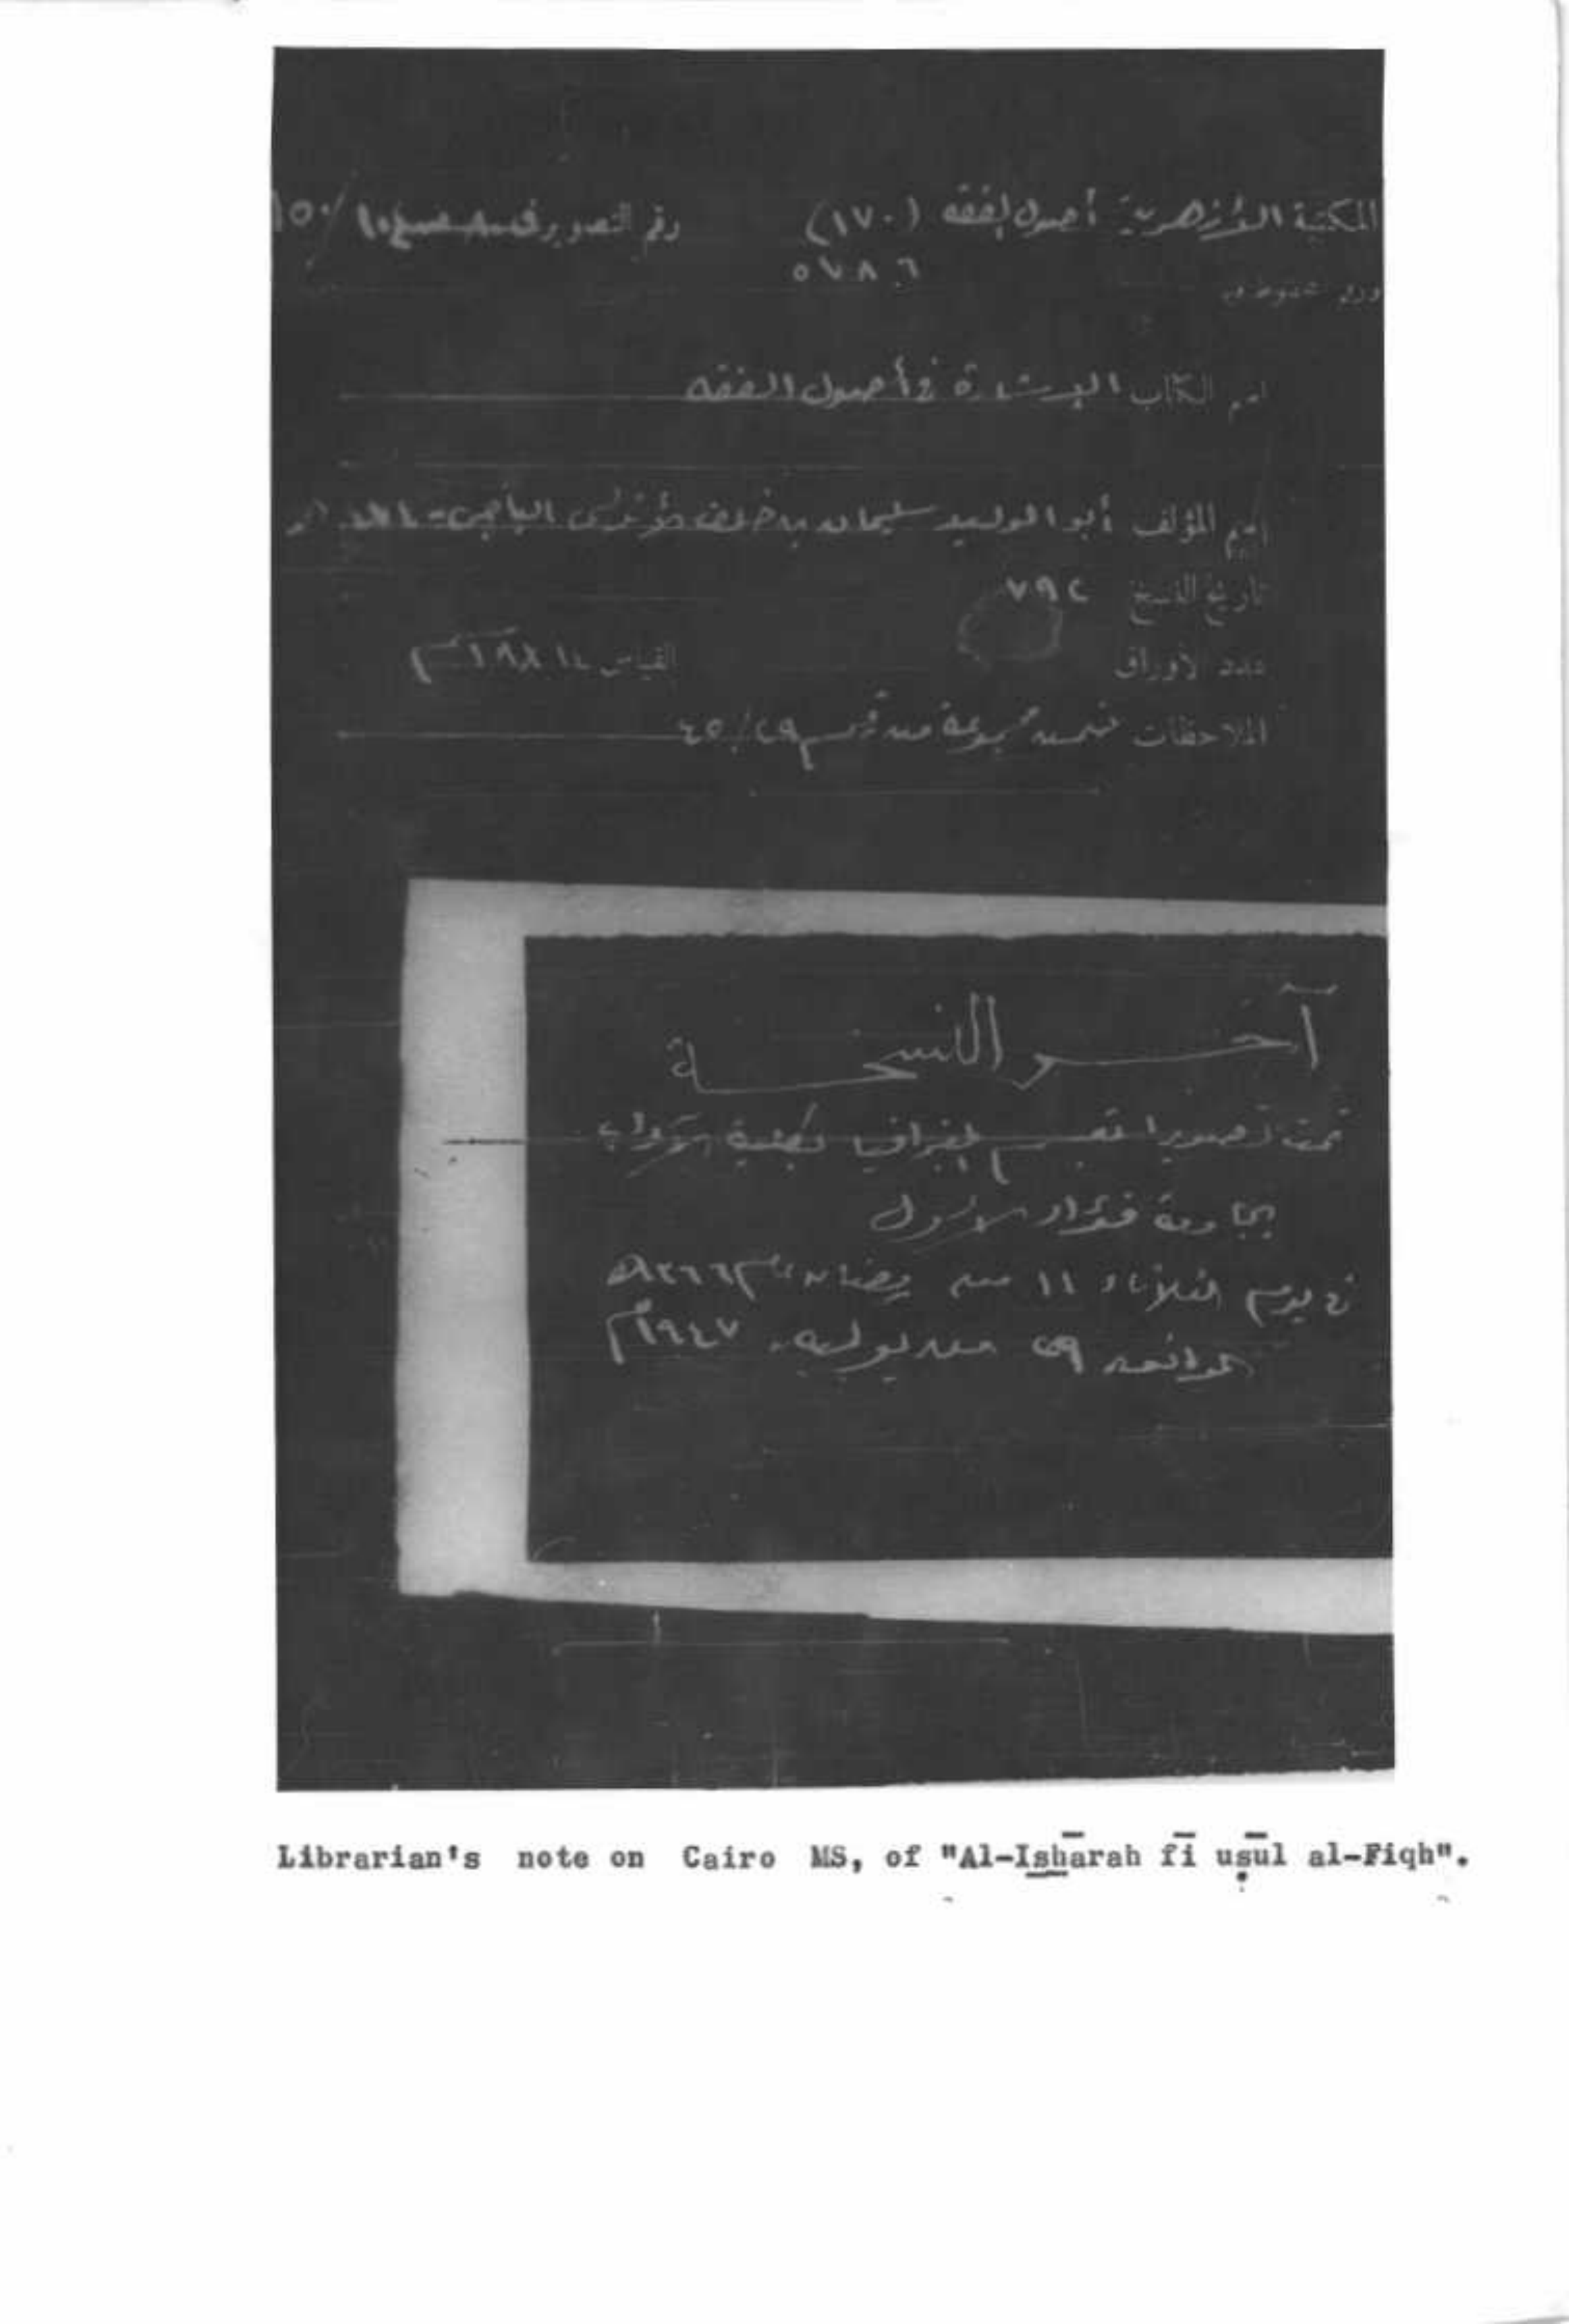 المكتبة الأزهرية أصول الفقه (١٧٠) رقم التصوير ١٥٠
٥٧٨٦
اسم الكتاب الإشارة في أصول الفقه
اسم المؤلف أبو الوليد سليمان بن خلف الأندلسى الباجى
تاريخ النسخ ٧٩٢
عدد الأوراق القياس ١٤ × ١٨ سم
الملاحظات ضمن مجموعة من ٢٩/٤٥
آخر النسخة
تمت تصويرا بقسم الجغرافيا بكلية الآداب
بجامعة فؤاد الأول
في يوم الثلاثاء ١١ من رمضان عام ١٣٦٦ه
الموافق ٢٩ من يوليه ١٩٤٧م
Librarian's note on Cairo MS, of "Al-Ishārah fī uṣūl al-Fiqh".